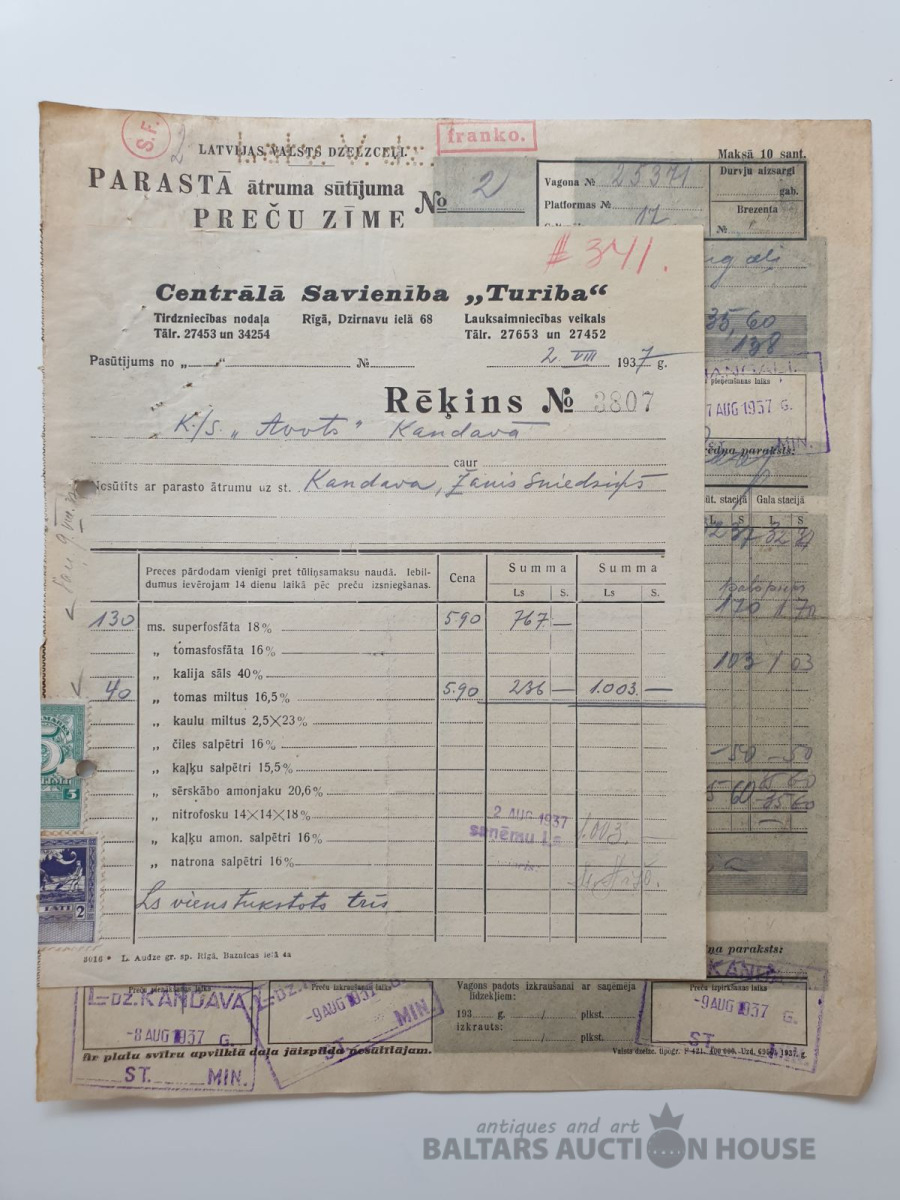 S.F.
2
LATVIJAS VALSTS DZELZCEĻI.
franko.
Maksā 10 sant.
PARASTĀ ātruma sūtījuma
PREČU ZĪME
№ 2
Vagona № 25371
Platformas №
17
Durvju aizsargi
gab.
Brezenta
№
# 341.
Centrālā Savienība „Turība“
Tirdzniecības nodaļa
Tālr. 27453 un 34254
Rīgā, Dzirnavu ielā 68
Lauksaimniecības veikals
Tālr. 27653 un 27452
35,60
138
Pasūtījums no „ “ № 2. VIII 1937 g.
pieņemšanas laiks
7 AUG 1937 G.
MIN.
Rēķins № 3807
K/S. „Avots“ Kandavā
paraksts:
caur
Nosūtīts ar parasto ātrumu uz st. Kandava, Žanis Sniedziņš
stacijā
Gala stacijā
L S L S
Preces pārdodam vienīgi pret tūliņsamaksu naudā. Iebil-
dumus ievērojam 14 dienu laikā pēc preču izsniegšanas.
Cena
Summa
Summa
Ls S. Ls S.
130 ms. superfosfāta 18% 5.90 767 —
„ tomasfosfāta 16%
„ kalija sāls 40%
40 „ tomas miltus 16,5% 5.90 236 — 1.003. —
„ kaulu miltus 2,5×23%
„ čīles salpētri 16%
„ kaļķu salpētri 15,5%
„ sērskābo amonjaku 20,6%
„ nitrofosku 14×14×18%
„ kaļķu amon. salpētri 16%
„ natrona salpētri 16%
170 170
103 103
-50 -50
5
2
2 AUG 1937
saņēmu Ls 1.003. —
Ls viens tūkstots trīs
3016 * L. Audze gr. sp. Rīgā, Baznīcas ielā 4a
paraksts:
KAND
L-DZ. KANDAVA
-8 AUG 1937 G.
ST. MIN.
Preču izkraušanas laiks
L-DZ.
-9 AUG 1937 G.
ST. MIN.
Vagons padots izkraušanai ar saņēmēja
līdzekļiem:
193 g. / plkst.
izkrauts:
/ plkst.
Preču izpirkšanas laiks
-9 AUG 1937 G.
ST.
Ar platu svītru apvilktā daļa jāizpilda nosūtītājam.
antiques and art
BALTARS AUCTION HOUSE